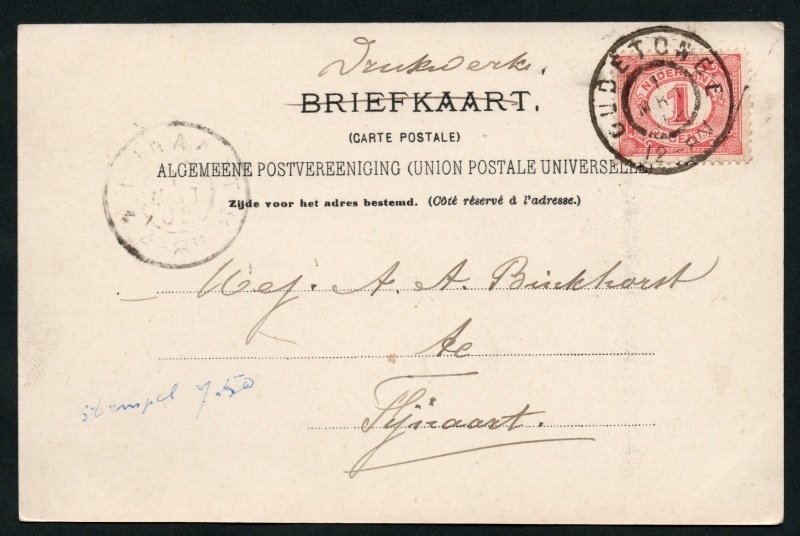 Drukwerk.
BRIEFKAART.
(CARTE POSTALE)
ALGEMEENE POSTVEREENIGING (UNION POSTALE UNIVERSELLE)
Zijde voor het adres bestemd. (Côté réservé à l'adresse.)
OUDETONGE
NEDERLAND
1
CENT
Mej. A. A. Binkhorst
te
Fijnaart.
stempel 7.50